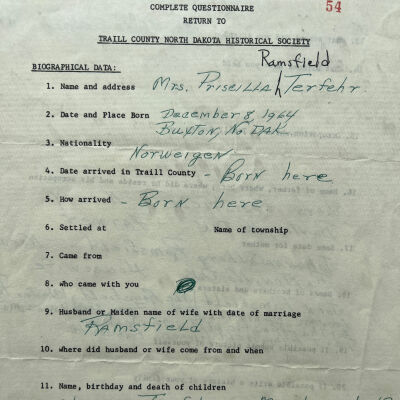 COMPLETE QUESTIONNAIRE
54
RETURN TO
TRAILL COUNTY NORTH DAKOTA HISTORICAL SOCIETY
Ramsfield
BIOGRAPHICAL DATA:
1. Name and address Mrs. Priscilla Terfehr
2. Date and Place Born December 8, 1964
Buxton, No. DAK
3. Nationality
Norweigen
4. Date arrived in Traill County - Born here
5. How arrived - Born here
6. Settled at Name of township
7. Came from
8. Who came with you
9. Husband or Maiden name of wife with date of marriage
Ramsfield
10. Where did husband or wife come from and when
11. Name, birthday and death of children